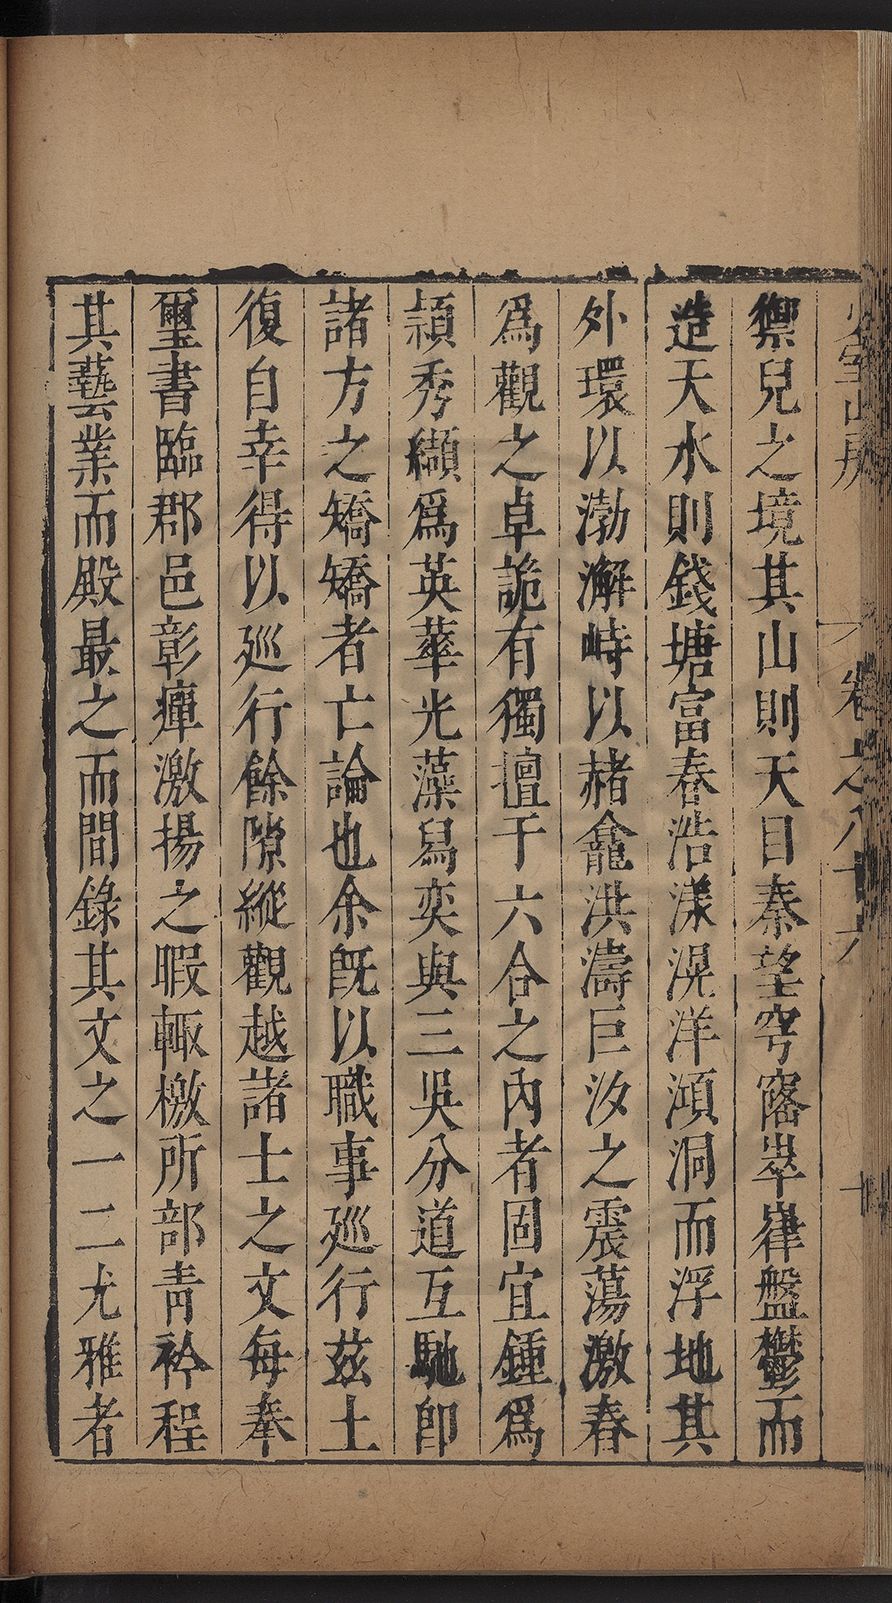 少室山房
卷之八十六
十
禦兒之境其山則天目秦望穹窿崒嵂盤鬱而
造天水則錢塘富春浩漾滉洋澒洞而浮地其
外環以渤澥峙以赭龕洪濤巨汐之震蕩激舂
爲觀之卓詭有獨擅于六合之內者固宜鍾爲
頴秀纈爲英華光藻舄奕與三吳分道互馳卽
諸方之矯矯者亡論也余旣以職事廵行兹土
復自幸得以廵行餘隙縱觀越諸士之文每奉
璽書臨郡邑彰癉激揚之暇輙檄所部青衿程
其藝業而殿最之而間錄其文之一二尤雅者